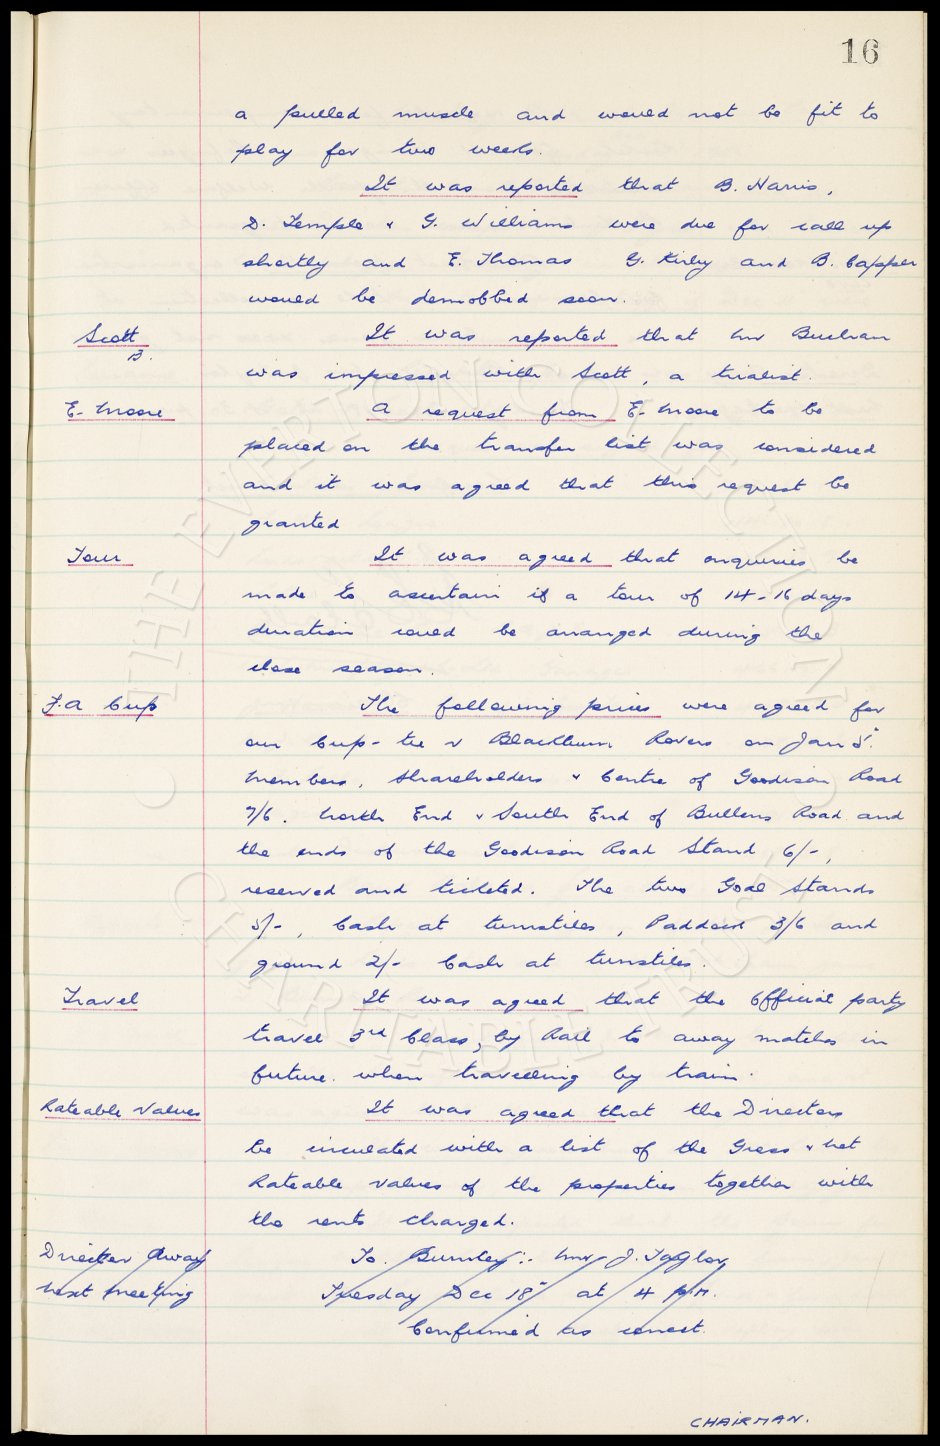 16
a pulled muscle and would not be fit to
play for two weeks.
It was reported that B. Harris,
D. Temple & G. Williams were due for call up
shortly and E. Thomas G. Kirby and B. Capper
would be demobbed soon.
Scott It was reported that Mr Buchan
B.
was impressed with Scott, a trialist.
E. Moore A request from E. Moore to be
placed on the transfer list was considered
and it was agreed that this request be
granted
Tour It was agreed that enquiries be
made to ascertain if a tour of 14-16 days
duration could be arranged during the
close season.
F.A Cup The following prices were agreed for
our Cup-tie v Blackburn Rovers on Jan 5th.
Members, Shareholders & Centre of Goodison Road
7/6. North End & South End of Bullens Road and
the ends of the Goodison Road Stand 6/-,
reserved and ticketed. The two Goal Stands
5/-, Cash at turnstiles, Paddock 3/6 and
ground 2/- Cash at turnstiles.
Travel It was agreed that the Official party
travel 3rd Class, by Rail to away matches in
future. when travelling by train.
Rateable Values It was agreed that the Directors
be circulated with a list of the Gross & Net
Rateable Values of the properties together with
the rents charged.
Director Away To. Burnley:- Mr J. Taylor
Next Meeting Tuesday Dec 18th at 4 p.m.
Confirmed as correct.
CHAIRMAN.
© THE EVERTON COLLECTION
CHARITABLE TRUST